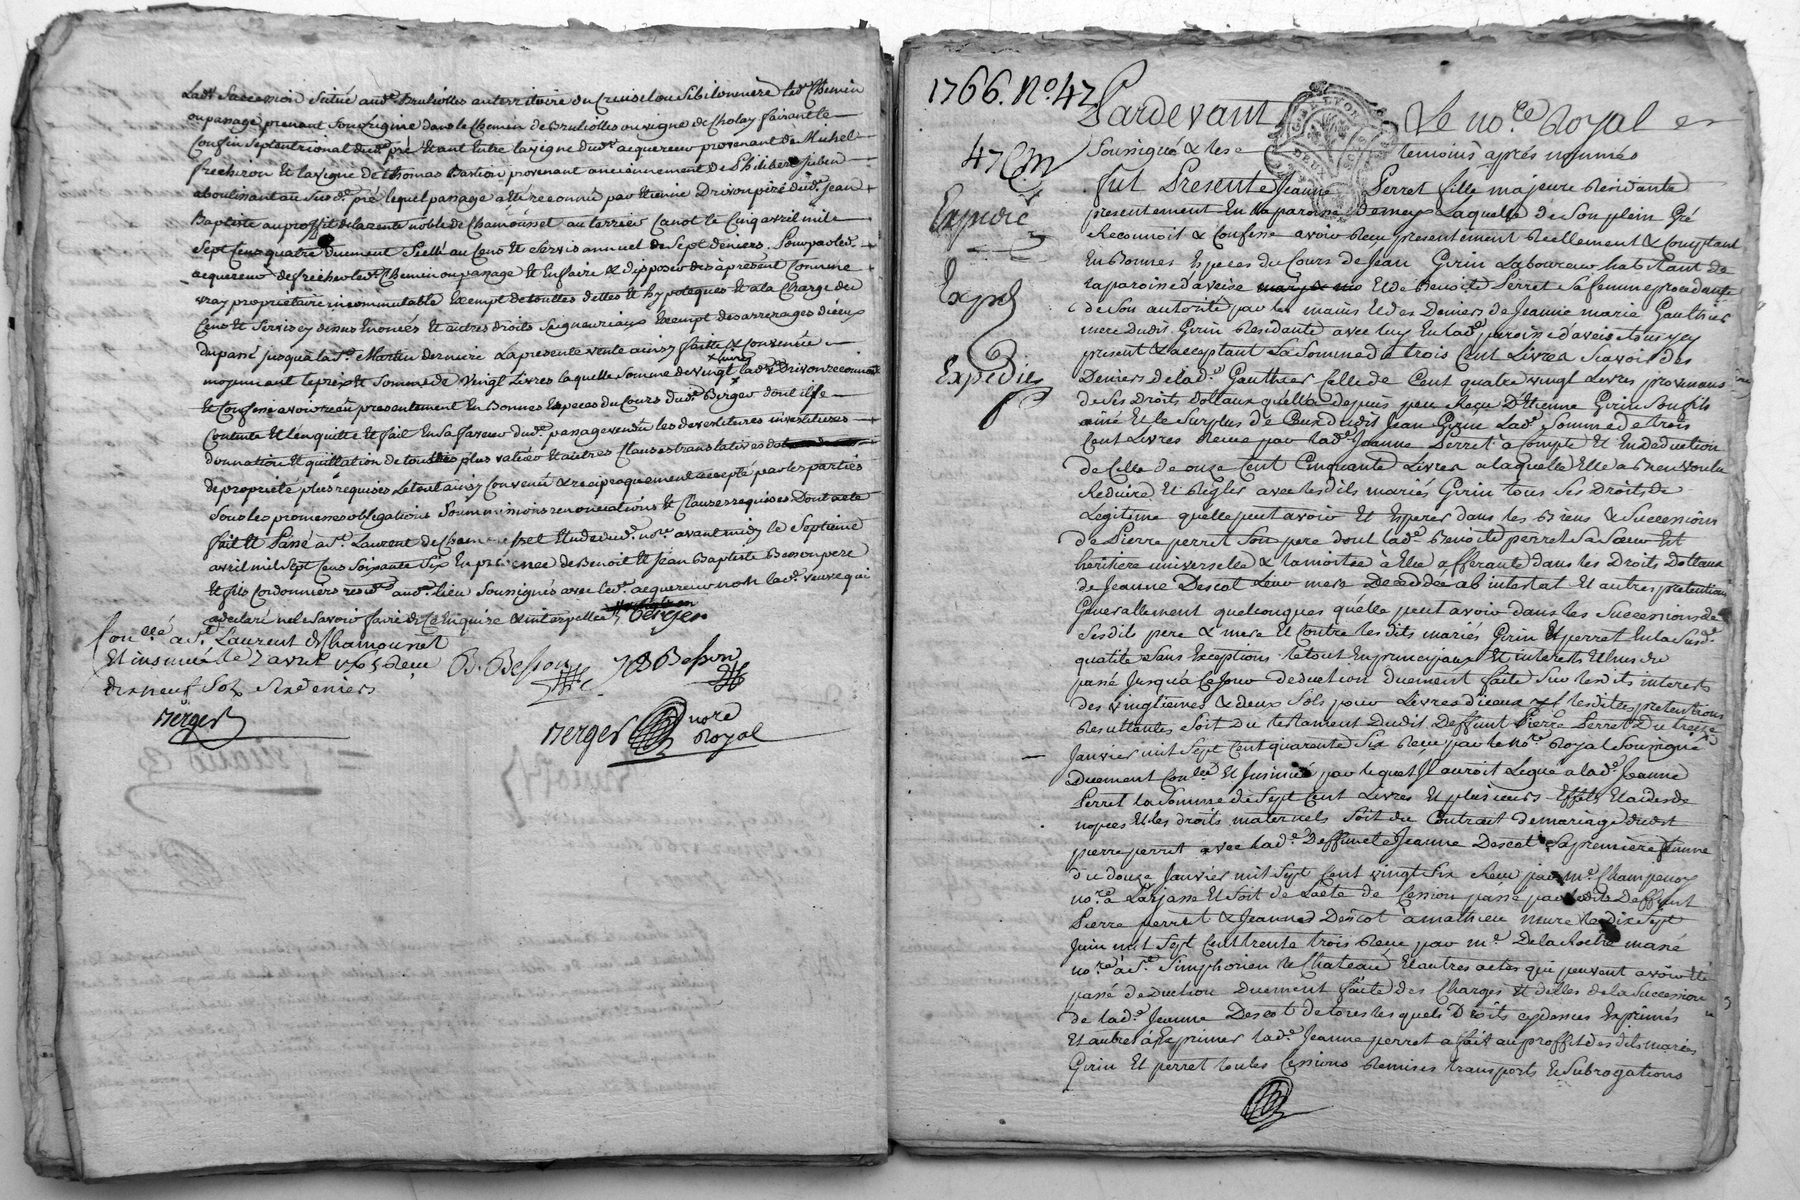 Lad.e Succession Scitué aud. Brulioles au territoire du Creuselou Sibilonniere led. Chemin
ou passage prenant Son origine dans le Chemin de Brulioles au vigne de Cholay faisant le
Confin Septentrional dud. pré Etant Entre la vigne dud. acquereur provenant de Michel
frechiron Et la vigne de thomas Bastion provenant anciennement de Philibert Julien
aboutissant au Susd. pré lequel passage a été reconnû par Etienne Drivon pere dud. Jean
Baptiste au proffit de la rente noble de Chamousset au terrier Canot le Cinq avril mil
Sept Cens quatre duement Scellé au Cens et Servis annuel de Sept deniers. Pour par led.
acquereur defricher led. Chemin ou passage Et En faire & disposer dès à présent Comme
vray proprietaire incommutable Exempt de toutes dettes Et hypoteques Et a la Charge des
Cens Et Servis cy dessus Enoncés Et autres droits Seigneuriaux Exempt des arrerages d'iceux
du passé jusqu'à la St. Martin derniere La presente vente ainsy faitte & Convenüe
moyennant le prix & Somme de vingt Livres laquelle Somme de vingt livres lad. Drivon reconnoit
Et Confesse avoir reçu presentement En Bonnes Especes du Cours dud. Berger dont il Se
Contente Et l'en quitte Et fait En Sa faveur dud. passage vendu les devestitures investitures
donnation Et quittation de toutes plus values Et autres Clauses translatives
de propriété plus requises Le tout ainsy Convenu & reciproquement accepté par les parties
Sous les promesses obligations Soummissions renonciations & Clauses requises Dont acte
fait Et Passé a St. Laurent de Chamousset Etude dud. nore. avant midy le Septieme
avril mil Sept Cens Soixante Six En presence de Benoit Et Jean Baptiste Besson pere
et fils Cordonniers resid. aud. lieu Soussignés avec led. acquereur non lad. veuve qui
a declaré ne le Savoir faire de Ce Enquise & interpellée Berger
Conllé a St. Laurent de Chamousset
Et insinué le 7 avril 1766 Reçu
dix neuf Sols Six deniers
Berger
B. Besson
J B Besson
Berger nore Royal
1766. No. 47
47
Expedié
Expd
Expediés
Pardevant Le no.re Royal
Soussigné & les temoins après nommés
fut Presente Jeanne Perret fille majeure Résidante
presentement En la paroisse Laquelle de Son plein Gré
Reconnoit & Confesse avoir Reçu presentement Réellement & Comptant
En Bonnes Especes du Cours de Jean Girin Laboureur habitant de
la paroisse d'aveise Et de Benoite Perret Sa femme procedante
de Son autorité par les mains Et des Deniers de Jeanne marie Gauthier
mere dudit Girin Residante avec luy En lad. paroisse d'aveise tous icy
present & acceptant La Somme de trois Cent Livres Scavoir des
Deniers de lad.e Gauthier Celle de Cent quatre vingt Livres provenans
de Ses Droits Dottaux quelle a depuis peu Reçu D'Etienne Girin Son fils
ainé Et le Surplus de Ceux dudit Jean Girin Lad. Somme de trois
Cent Livres Reçue par lad.e Jeanne Perret à Compte Et En deduction
de Celle de onze Cent Cinquante Livres a laquelle Elle a Bien voulu
Reduire Et Regler avec lesdits mariés Girin tous Ses Droits de
Legitime quelle peut avoir Et Esperer dans les Biens & Successions
de Pierre perret Son pere dont lad.e Benoite perret Sa Sœur Est
heritiere universelle & la moitée à Elle afferante dans les Droits Dottaux
de Jeanne Descot Leur mere Decedée ab intestat Et autres pretentions
Generallement quelconques qu'elle peut avoir dans les Successions de
Sesdits pere & mere Et Contre lesdits mariés Girin Et perret En la Susd.
qualité Sans Exceptions le tout En principaux Et interests Echus du
passé Jusqu'à Ce Jour deduction duement faite Sur lesdits interests
des vingtiemes & deux Sols pour Livres d'iceux lesdites pretentions
Resultantes Soit Du testament Dudit Deffunt Pierre Perret Du treize
Janvier mil Sept Cent quarente Six Reçu par le No.re Royal Soussigné
Duement Con.llé Et Insinué par lequel Il auroit Legué a lad.e Jeanne
Perret la Somme de Sept Cent Livres Et plusieurs Effets Etaides de
nopces Et les droits maternels Soit du Contrait de mariage dudit
pierre perret avec lad.e Deffunte Jeanne Descot Sa premiere femme
du douze Janvier mil Sept Cent vingt Six Reçu par M.e Champenoy
no.re a Larjasse Et Soit de L'acte de Cession passé par ledit Deffunt
Pierre perret & Jeanne Descot à mathieu mure le dix Sept
Juin mil Sept Cent trente trois Reçu par M.e Dela Roche
no.re à St. Simphorien le Chateau Et autres actes qui peuvent avoir été
passé deduction duement faite des Charges Et dettes de la Succession
de lad.e Jeanne Descot de tous lesquels Droits cy dessus Exprimés
Et autres à Exprimer lad.e Jeanne perret a fait au proffit desdits mariés
Girin Et perret toutes Cessions Remises transports & Subrogations